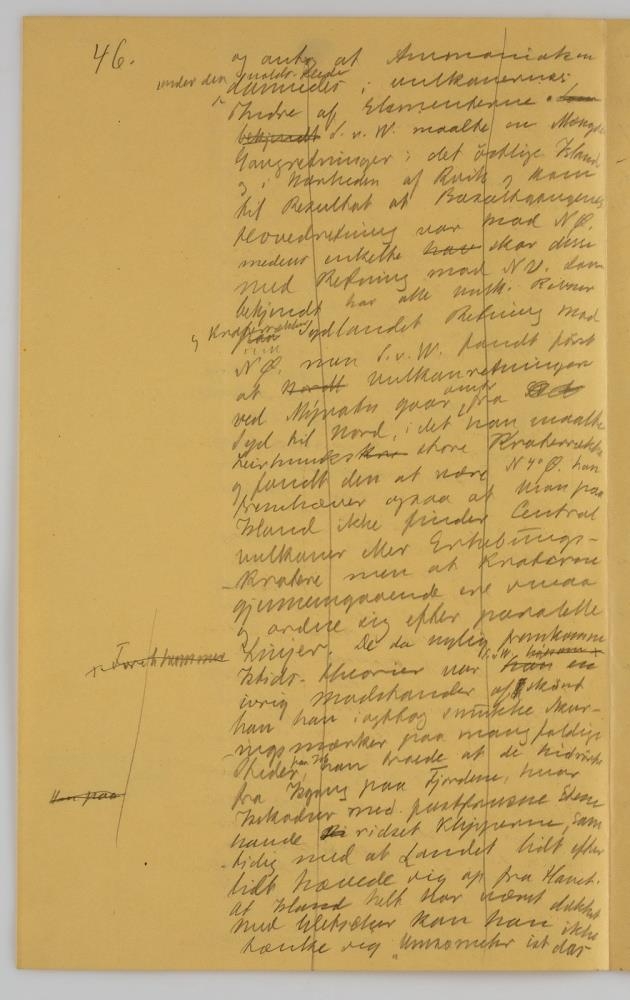 46.
og antog at Ammoniaken
under den
dannedes i vulkanernes
Indre af Elementerne. Som
bekjendt S. v. W. maalte en Mængde
Gangretninger i det östlige Island
og i Nærheden af Rvik og kom
til Resultat at Basaltgangenes
Hovedretning var mod NØ.
medens enkelte har skar disse
med Retning mod NV. Som
bekjendt har alle vulk. Revner
og Kraterrækker
paa Sydlandet Retning mod
NØ. men S. v. W. fandt först
at Nordl vulkanretningen
ved Mývatn gaar omtr fra
Syd til Nord, i det han maalte
Leirhnuks store Kraterrække
og fandt den at være N 4° Ø. han
fremhæver ogsaa at man paa
Island ikke finder Central
vulkaner eller Erhebungs-
kratere men at Kraterne
gjennemgaaende ere smaa
og ordne sig efter parallelle
Linjer. De da nylig fremkomne
Istids-theorier var han en
ivrig Modstander af, skönt
han han iagttog smukke Skur-
ingsmærker paa mangfoldige
Steder, han troede at de hidrörte
fra Isgang paa Fjordene, hvor
Isskodser med fastfrosne Stene
havde ridset Klipperne, sam
tidig med at Landet lidt efter
lidt hævede sig op fra Havet.
at Island helt har været dækket
med Gletscher kan han ikke
tænke sig „Umsomehr ist das
Han paa